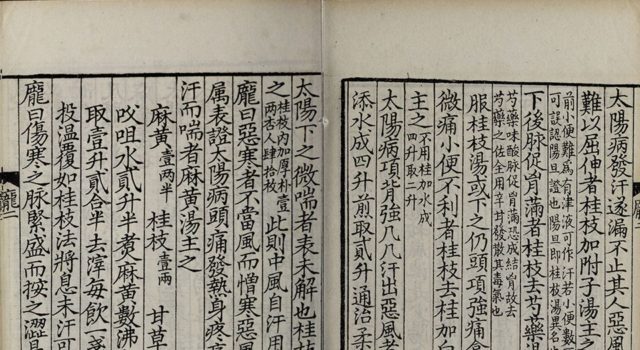 太陽病發汗遂漏不止其人惡風
難以屈伸者桂枝加附子湯主之
前小便難為有津液可作汗若小便數
可誤認陽旦證也陽旦即桂枝湯異名
下後脉促胷滿者桂枝去芍藥
芍藥味酸脉促胷滿恐成結胷故去
芍藥之佐全用辛甘發散其毒氣也
服桂枝湯或下之仍頭項強痛
微痛小便不利者桂枝去桂加白
主之
不用桂加水成
四升取二升
太陽病項背強几几汗出惡風者
添水成四升煎取貳升通治柔
太陽下之微喘者表未解也桂枝
之桂枝內加厚朴壹
兩杏人肆拾枚
此則中風自汗用
龐曰惡寒者不當風而憎寒惡風
属表證太陽病頭痛發熱身疼
汗而喘者麻黃湯主之
麻黃壹兩半 桂枝壹兩 甘草
㕮咀水貳升半煑麻黃數沸
取壹升貳合半去滓每飲一
投温覆如桂枝法將息未汗可
龐曰傷寒之脉緊盛而按之澀